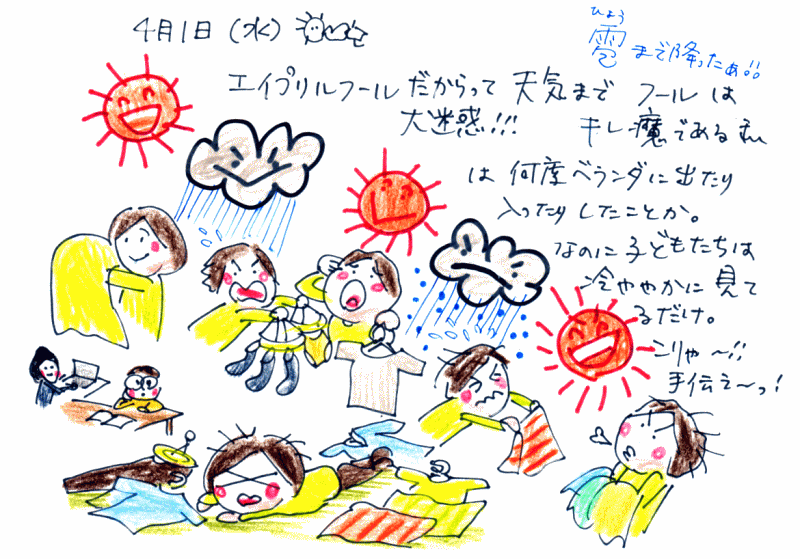 4月1日(水)
ひょう
雹まで降ったぁ!!
エイプリルフールだからって天気まで フールは
大迷惑!!! キレ魔である私
は何度ベランダに出たり
入ったりしたことか。
なのに子どもたちは
冷ややかに見て
るだけ。
こりゃ〜!!
手伝え〜っ!